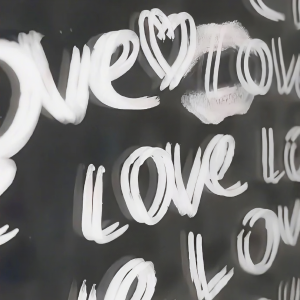 ove ♡ Love
Love Lo
Love